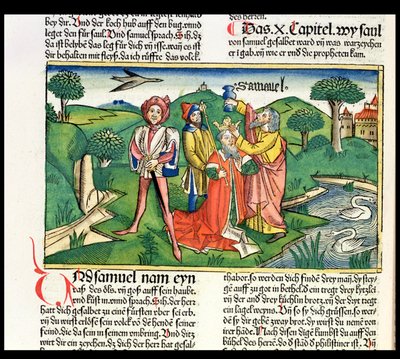 bey dir. Vnd der koch hub auff den bug.vnnd
leget den für saul. Vnd samuel sprach. Sih.dz
da ist belybē das leg für dich vñ isse.wañ es ist
dir behalten mit fleyß.da ich rüffte das volck.
des herren.
Das .X. Capitel. wy saul
von samuel gesalbet ward vñ was warzeychen
er i gab.vñ wie er vnd die propheten kam.
Samuel.
VNd samuel nam eyn
vaß des öls. vñ goß auff sein haubt.
vnnd küßt in.vnnd sprach. Sih.der herr
hat dich gesalbet zu eim fürsten vber sei erb.
vñ du wirst erlösen sein volck võ dē hende seiner
feind.die da sein in seinem vmbring. Vnd ditz
wirt dir ein zeychen.dz dich der herr hat gesal
thabor.so werden dich findē drey mañ.dy stey
gē auff zu got in bethel.d ein tregt drey kytzlī
vñ der and drey küchlin brotz.vñ der dryt tregt
ein lagel weyns. Vñ so sy dich grüssen.so wer
dē sy dir gebē zway brot. vñ du wirst nemē von
irer hand. Nach disen dingē kumbst du auff dē
bühel des herrē.do dy stat d philistiner ist. Vñ